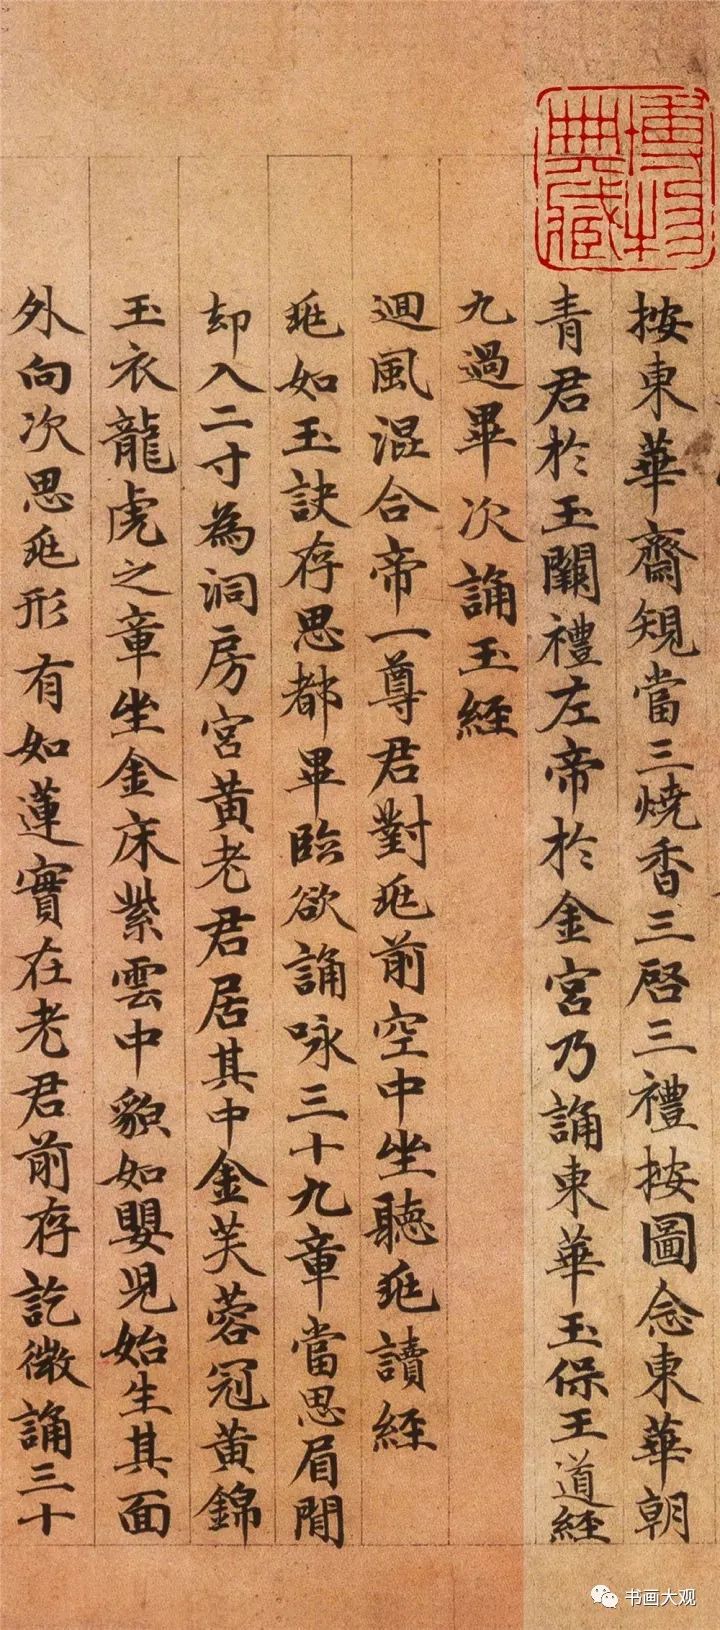 博物
典藏
按東華齋規當三燒香三啓三禮按圖念東華朝
青君於玉闕禮左帝於金宮乃誦東華玉保王道經
九過畢次誦玉經
迴風混合帝一尊君對𫝹前空中坐聽𫝹讀經
𫝹如玉訣存思都畢臨欲誦咏三十九章當思眉間
却入二寸為洞房宮黃老君居其中金芙蓉冠黃錦
玉衣龍虎之章坐金床紫雲中貌如嬰兒始生其面
外向次思𫝹形有如蓮實在老君前存訖微誦三十
书画大观